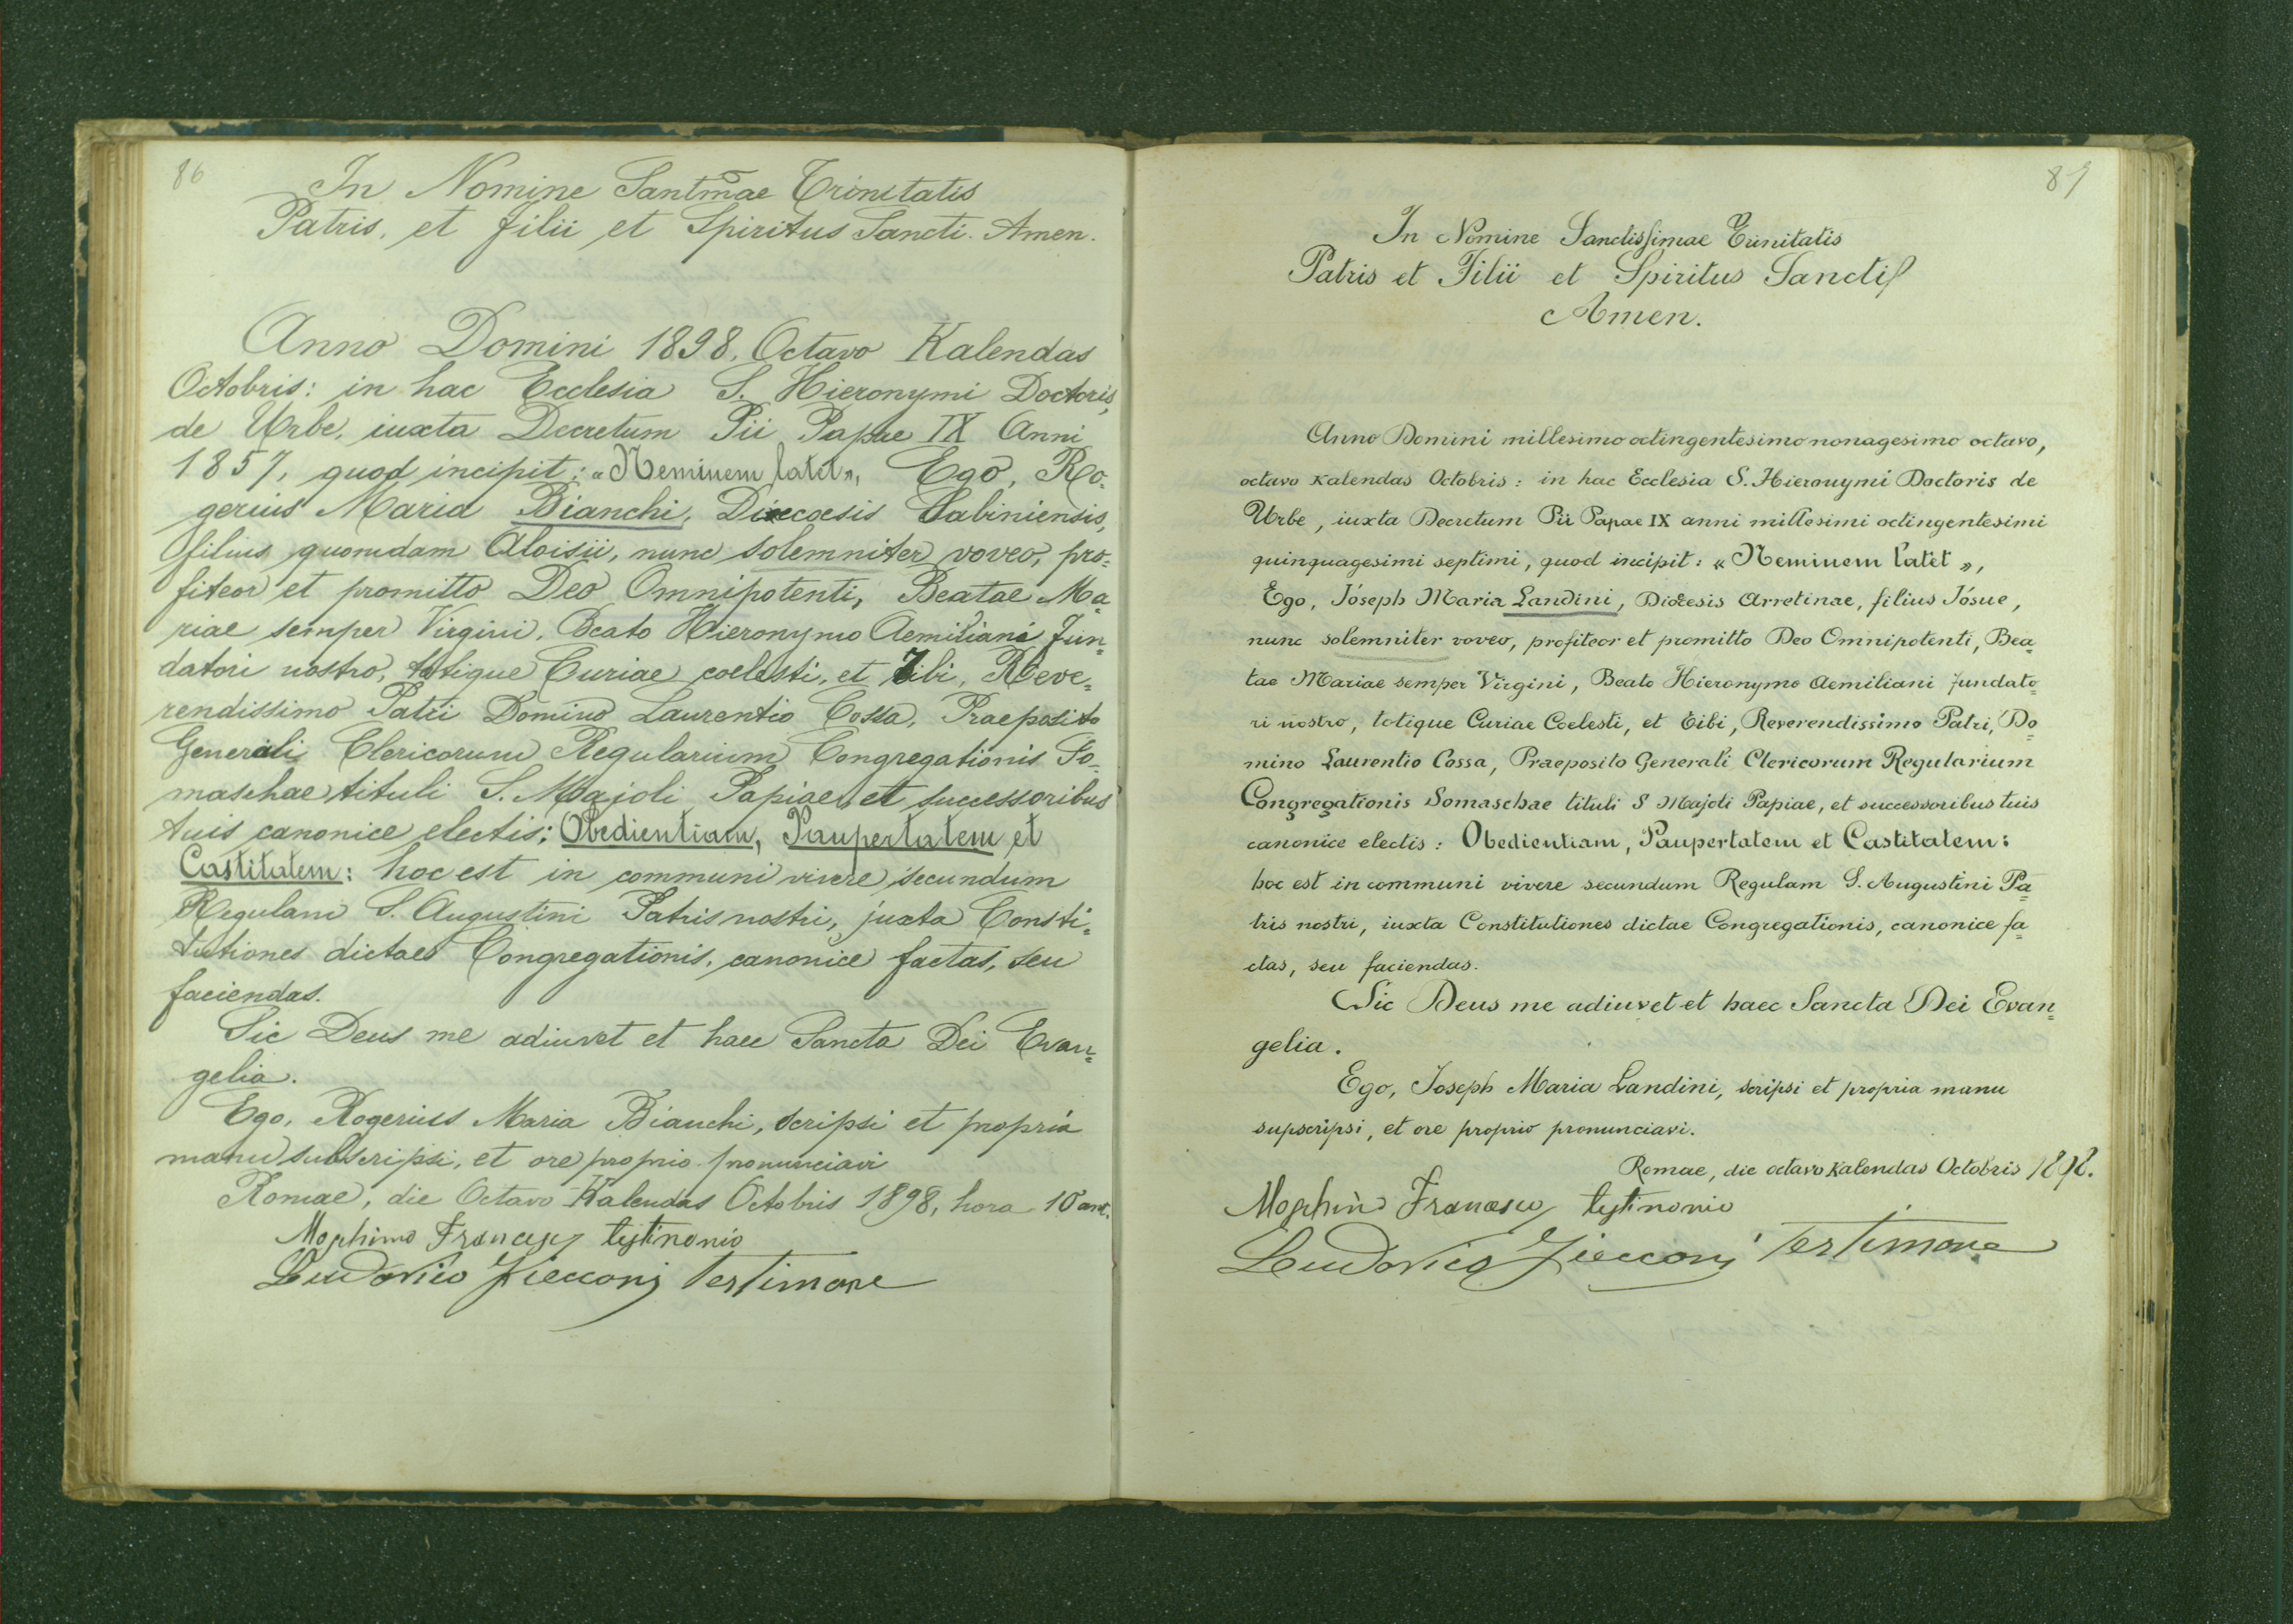 86
In Nomine Santmae Trinitatis
Patris, et Filii et Spiritus Sancti. Amen.
Anno Domini 1898, Octavo Kalendas
Octobris: in hac Ecclesia S. Hieronymi Doctoris,
de Urbe, iuxta Decretum Pii Papae IX Anni
1857, quod incipit: «Neminem latet», Ego, Ro=
gerius Maria Bianchi, Dioecesis Sabiniensis,
filius quondam Aloisii, nunc solemniter voveo, pro=
fiteor et promitto Deo Omnipotenti, Beatae Ma=
riae semper Virgini, Beato Hieronymo Aemiliani Fun=
datori nostro, totique Curiae coelesti, et Tibi, Reve=
rendissimo Patri Domino Laurentio Cossa, Praeposito
Generali Clericorum Regularium Congregationis So=
maschae tituli S. Majoli Papiae, et successoribus
tuis canonice electis: Obedientiam, Paupertatem et
Castitatem: hoc est in communi vivere secundum
Regulam S. Augustini Patris nostri, juxta Consti=
tutiones dictaes Congregationis, canonice factas, seu
faciendas.
Sic Deus me adiuvet et haec Sancta Dei Evan=
gelia.
Ego, Rogerius Maria Bianchi, scripsi et propria
manu subscripsi, et ore proprio pronunciavi
Romae, die Octavo Kalendas Octobris 1898, hora 10 ant.
Francesco testimonio
Ludovico testimone
87
In Nomine Sanctissimae Trinitatis
Patris et Filii et Spiritus Sancti
Amen.
Anno Domini millesimo octingentesimo nonagesimo octavo,
octavo Kalendas Octobris: in hac Ecclesia S. Hieronymi Doctoris de
Urbe, iuxta Decretum Pii Papae IX anni millesimi octingentesimi
quinquagesimi septimi, quod incipit: «Neminem latet»,
Ego, Joseph Maria Landini, Diœcesis Arretinae, filius Josue,
nunc solemniter voveo, profiteor et promitto Deo Omnipotenti, Bea=
tae Mariae semper Virgini, Beato Hieronymo Aemiliani fundato=
ri nostro, totique Curiae Coelesti, et Tibi, Reverendissimo Patri, Do=
mino Laurentio Cossa, Praeposito Generali Clericorum Regularium
Congregationis Somaschae tituli S Majoli Papiae, et successoribus tuis
canonice electis: Obedientiam, Paupertatem et Castitatem:
hoc est in communi vivere secundum Regulam S. Augustini Pa=
tris nostri, iuxta Constitutiones dictae Congregationis, canonice fa=
ctas, seu faciendas.
Sic Deus me adiuvet et haec Sancta Dei Evan=
gelia.
Ego, Joseph Maria Landini, scripsi et propria manu
supscripsi, et ore proprio pronunciavi.
Romae, die octavo Kalendas Octobris 1898.
Francesco testimonio
Ludovico testimone